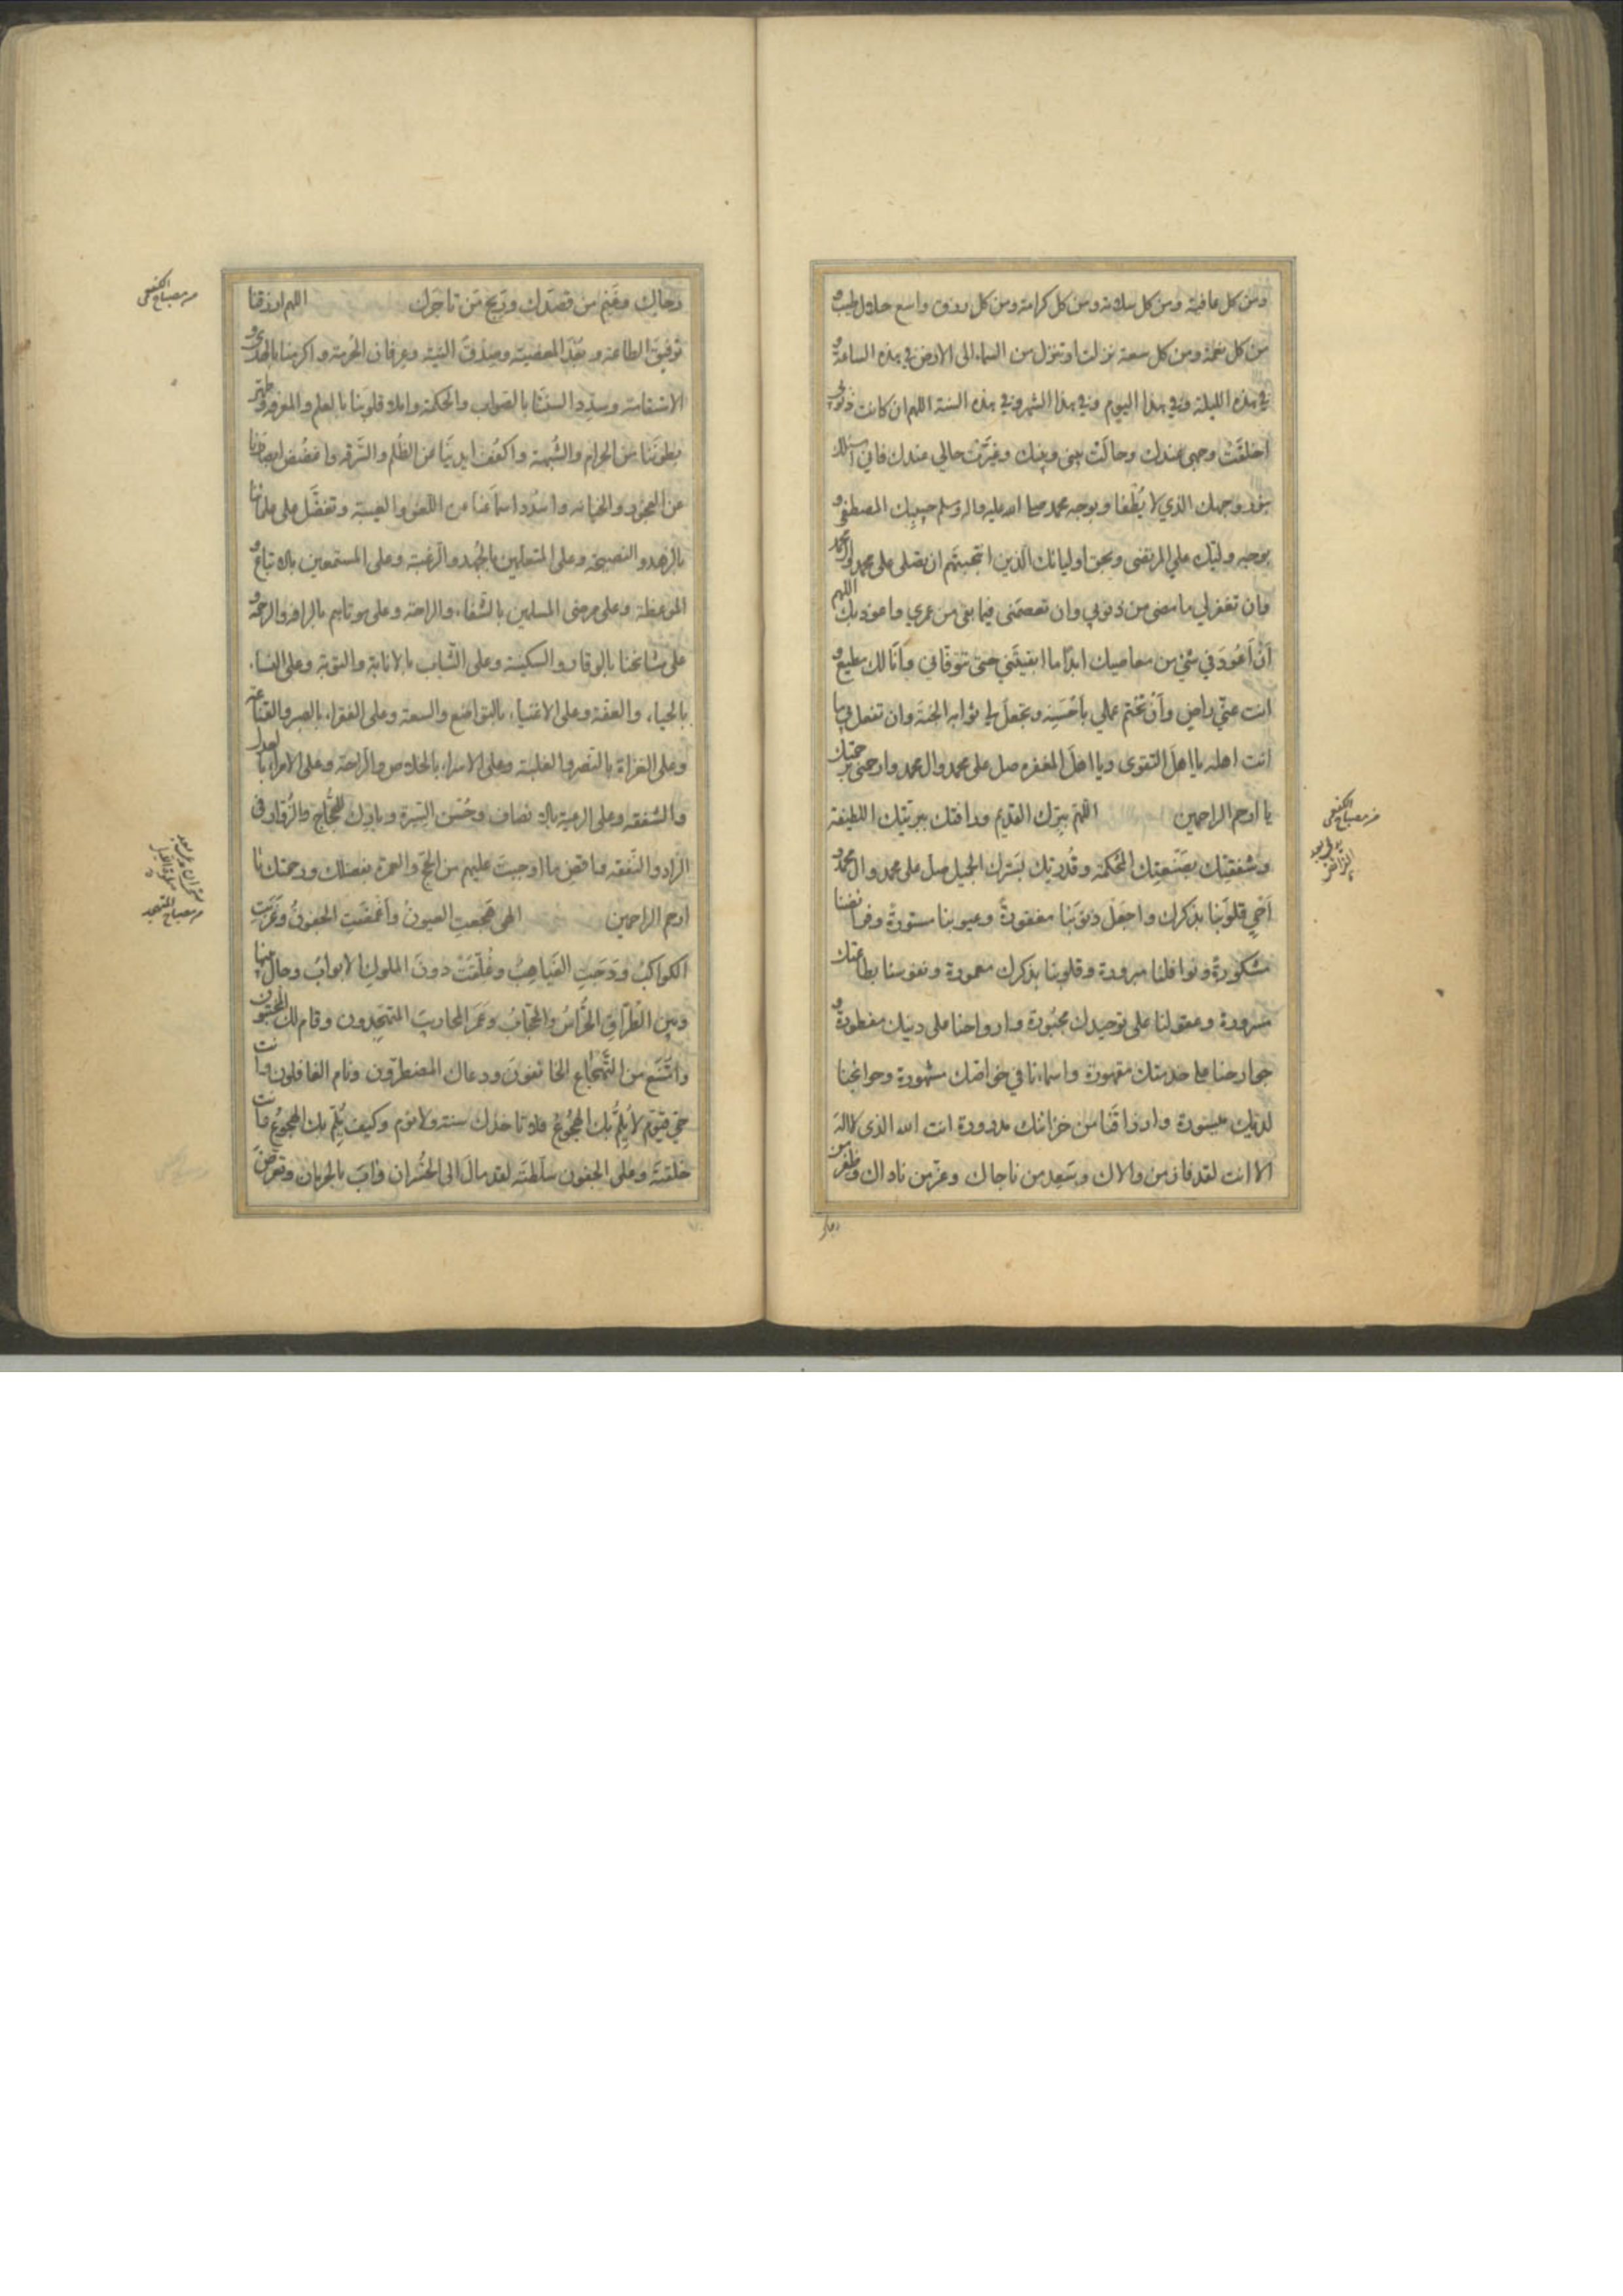 ومن كل عافية ومن كل سلامة ومن كل كرامة ومن كل رزق واسع حلال طيب و
من كل نعمة ومن كل سعة نزلت او تنزل من السماء الى الارض في هذه الساعة و
في هذه الليلة وفي هذا اليوم وفي هذا الشهر وفي هذه السنة اللهم ان كانت ذنوبي
اخلقت وجهي عندك وحالت بيني وبينك وغيرت حالي عندك فاني اسئلك
بنور وجهك الذي لا يطفا وبوجه محمد صلى الله عليه واله وسلم حبيبك المصطفى و
بوجه وليك علي المرتضى وبحق اوليائك الذين انتجبتهم ان تصلى على محمد وال محمد
وان تغفر لي ما مضى من ذنوبي وان تعصمنى فيما بقى من عمري واعوذ بك اللهم
أن أعود في شيء من معاصيك ابدًا ما ابقيتني حتى تتوفاني وانا لك مطيع و
انت عني راض وأن تختم عملي بأحسنه وتجعل لي ثوابه الجنة وان تفعل بي ما
انت اهله يا اهل التقوى ويا اهل المغفره صل على محمد وال محمد وارحمنى برحمتك
يا ارحم الراحمين اللهم ببرك القديم ورافتك ببريتك اللطيفة
وشفقتك بصنعتك المحكمة وقدرتك بسترك الجميل صل على محمد وال محمد و
أحي قلوبنا بذكرك واجعل ذنوبنا مغفورة وعيوبنا مستورة وفرائضنا
مشكورة ونوافلنا مبرورة وقلوبنا بذكرك معمورة ونفوسنا بطاعتك
مسرورة وعقولنا على توحيدك مجبورة وارواحنا على دينك مفطورة و
جوارحنا على خدمتك مقهورة واسماءنا في خواصك مشهورة وحوائجنا
لديك ميسورة وارزاقنا من خزائنك مدرورة انت الله الذى لا اله
الا انت لقد فاز من والاك وسعد من ناجاك وعز من ناداك وظفر من
رجاك
من مصباح الكفعمى
رجاك وغنم من قصدك وربح من تاجرك اللهم ارزقنا
توفيق الطاعة وبعد المعصية وصدق النية وعرفان الحرمة واكرمنا بالهدى و
الاستقامة وسدد السنتنا بالصواب والحكمة واملا قلوبنا بالعلم والمعرفة وطهر
بطوننا من الحرام والشبهة واكفف ايدينا عن الظلم والسرقه واغضض ابصارنا
عن الفجور والخيانه واسدد اسماعنا عن اللغو والغيبة وتفضل على علمائنا
بالزهد والنصيحة وعلى المتعلمين بالجهد والرغبة وعلى المستمعين بالاتباع و
الموعظة وعلى مرضى المسلمين بالشفاء والراحة وعلى موتاهم بالرافه والرحمة و
على مشائخنا بالوقار والسكينة وعلى الشباب بالانابة والتوبة وعلى النساء
بالحياء والعفة وعلى الاغنياء بالتواضع والسعة وعلى الفقراء بالصبر والقناعة
وعلى الغزاة بالنصر والغلبة وعلى الاسراء بالخلاص والراحة وعلى الامراء بالعدل
والشفقه وعلى الرعية بالانصاف وحسن السيرة وبارك للحجاج والزوار فى
الزاد والنفقه واقض ما اوجبت عليهم من الحج والعمرة بفضلك ورحمتك يا
ارحم الراحمين الهى هجعت العيون وأغمضت الجفون وغربت
الكواكب ودجت الغياهب وغلقت دون الملوك الابواب وحال بينها
وبين الطراق الحراس والحجاب وعمر المحاريب المتهجدون وقام لك المخبتون
وامتنع من التهجاع الخائفون ودعاك المضطرون ونام الغافلون وانت
حي قيوم لا يلم بك الهجوع فلا تاخذك سنة ولا نوم وكيف يلم بك الهجوع وانت
خلقته وعلى الجفون سلطته لقد مال الى الخسران واب بالحرمان وتعرض
من مصباح الكفعمى
من مصباح المتهجد